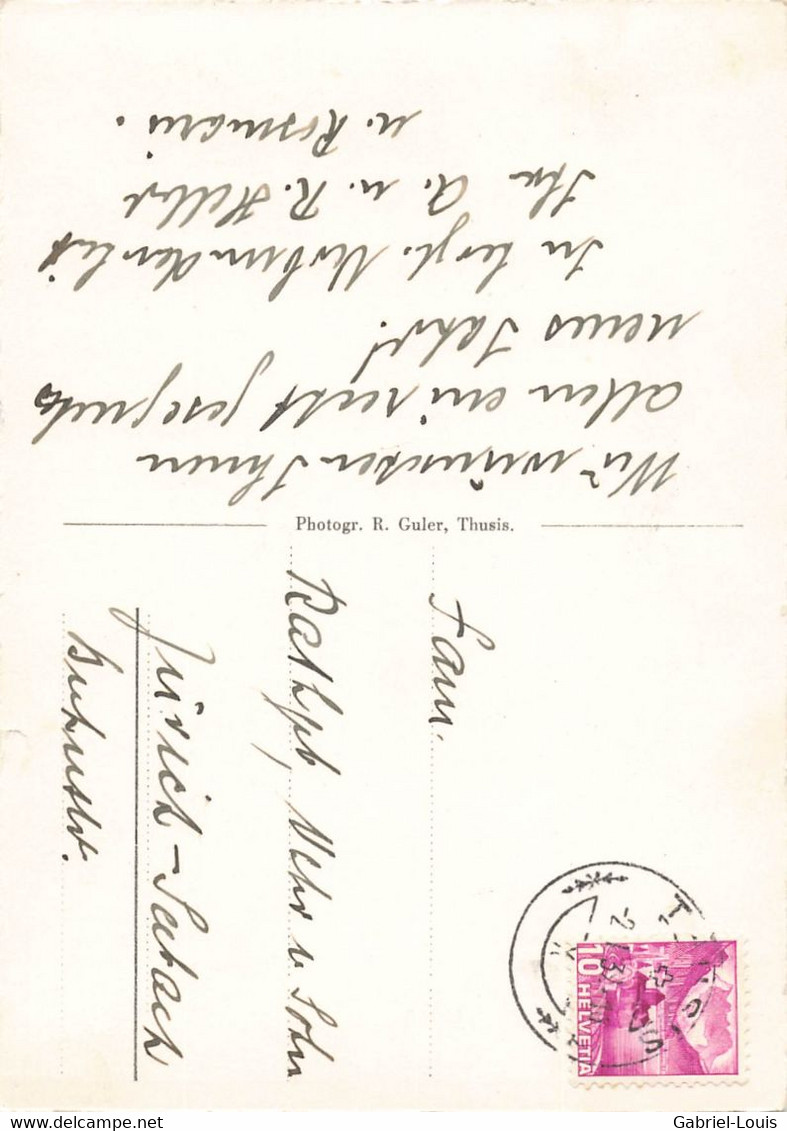 Wir wünschen Ihnen
allen ein recht gesegnetes
neues Jahr!
In herzl. Verbundenheit
Ihr A. u. R.
u. Rosmarie.
Photogr. R. Guler, Thusis.
Fam.
Rathgeb, Vehr u Sohn
Zürich-Seebach
10 HELVETIA
delcampe.net
Gabriel-Louis